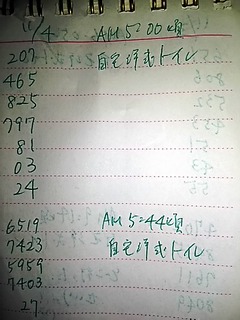 11/4 AM 5:00頃
207 自宅洋式トイレ
465
825
797
81
03
24
6519 AM 5:44頃
7423 自宅洋式トイレ
5959
7403
27